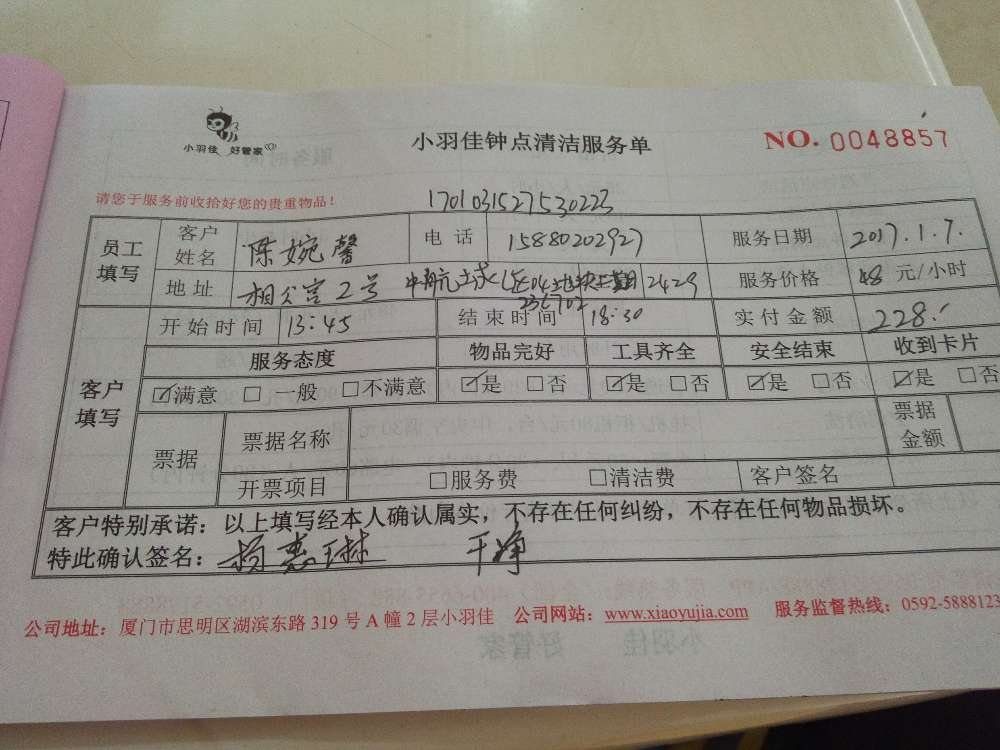 小羽佳 好管家
小羽佳钟点清洁服务单
NO. 0048857
请您于服务前收拾好您的贵重物品！
170103152753022​3
员工填写 客户姓名 陈婉馨 电话 15880202927 服务日期 2017.1.7.
地址 相公宫2号 中航 2429 服务价格 48 元/小时
236702
客户填写 开始时间 13:45 结束时间 18:30 实付金额 228.
服务态度 物品完好 工具齐全 安全结束 收到卡片
☑满意 □一般 □不满意 ☑是 □否 ☑是 □否 ☑是 □否 ☑是 □否
票据 票据名称 票据金额
开票项目 □服务费 □清洁费 客户签名
客户特别承诺：以上填写经本人确认属实，不存在任何纠纷，不存在任何物品损坏。
特此确认签名：杨惠琳 干净
公司地址：厦门市思明区湖滨东路 319 号 A 幢 2 层小羽佳 公司网站：www.xiaoyujia.com 服务监督热线：0592-5888123